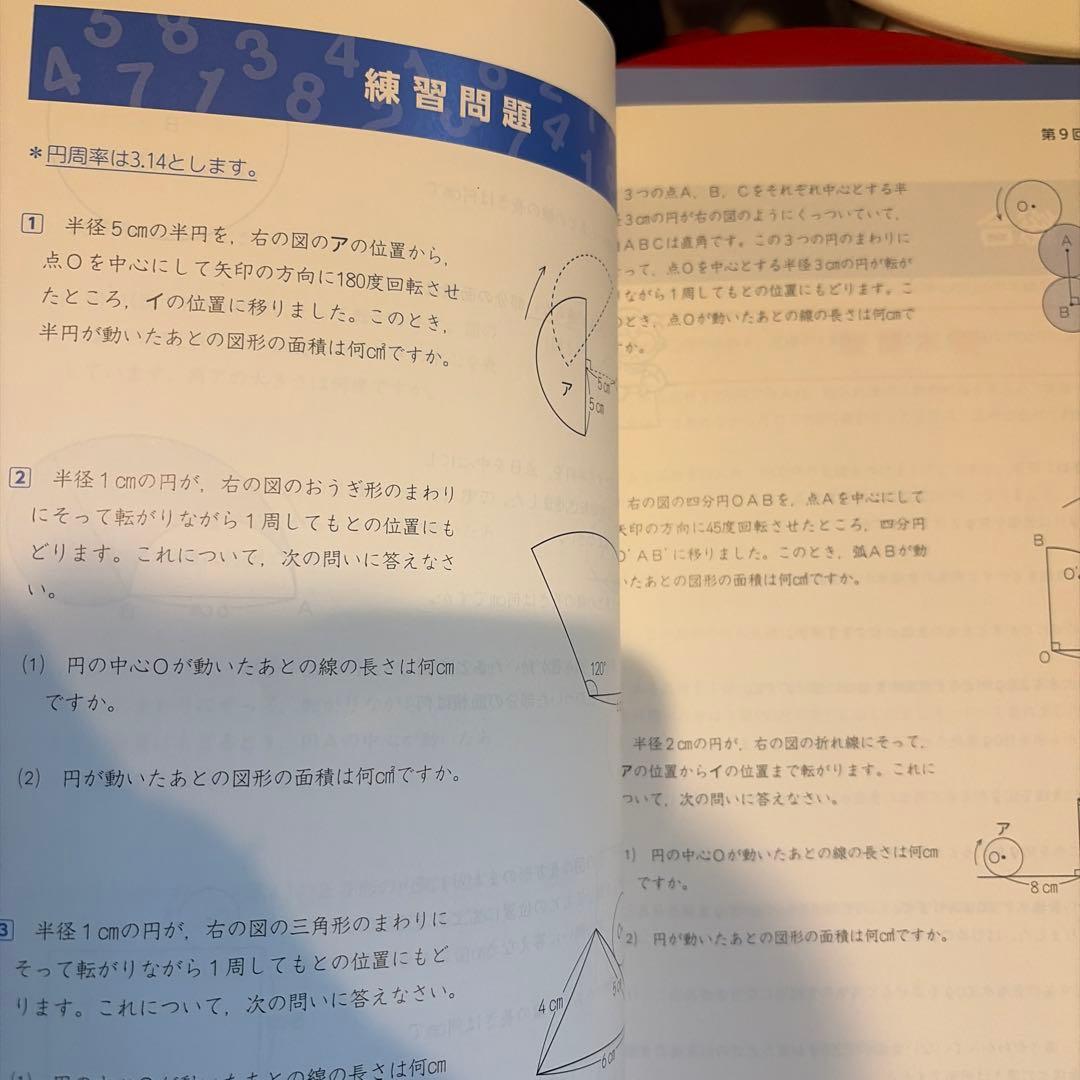 5 8 3 4
4 7 1 8
練習問題
*円周率は3.14とします。
1 半径5cmの半円を，右の図のアの位置から，
点Oを中心にして矢印の方向に180度回転させ
たところ，イの位置に移りました。このとき，
半円が動いたあとの図形の面積は何c㎡ですか。
ア
5cm
5cm
2 半径1cmの円が，右の図のおうぎ形のまわり
にそって転がりながら1周してもとの位置にも
どります。これについて，次の問いに答えなさ
い。
120°
(1) 円の中心Oが動いたあとの線の長さは何cm
ですか。
(2) 円が動いたあとの図形の面積は何c㎡ですか。
3 半径1cmの円が，右の図の三角形のまわりに
そって転がりながら1周してもとの位置にもど
ります。これについて，次の問いに答えなさい。
4cm
6cm
(1) 円の中心Oが動いたあとの線の長さは何cm
第9回
3つの点A，B，Cをそれぞれ中心とする半
径3cmの円が右の図のようにくっついていて，
ABCは直角です。この3つの円のまわりに
って，点Oを中心とする半径3cmの円が転が
ながら1周してもとの位置にもどります。こ
とき，点Oが動いたあとの線の長さは何cmで
か。
O
A
B
右の図の四分円OABを，点Aを中心にして
矢印の方向に45度回転させたところ，四分円
O'AB'に移りました。このとき，弧ABが動
いたあとの図形の面積は何c㎡ですか。
B
O'
O
半径2cmの円が，右の図の折れ線にそって，
アの位置からイの位置まで転がります。これに
ついて，次の問いに答えなさい。
1) 円の中心Oが動いたあとの線の長さは何cm
ですか。
2) 円が動いたあとの図形の面積は何c㎡ですか。
ア
O
8cm